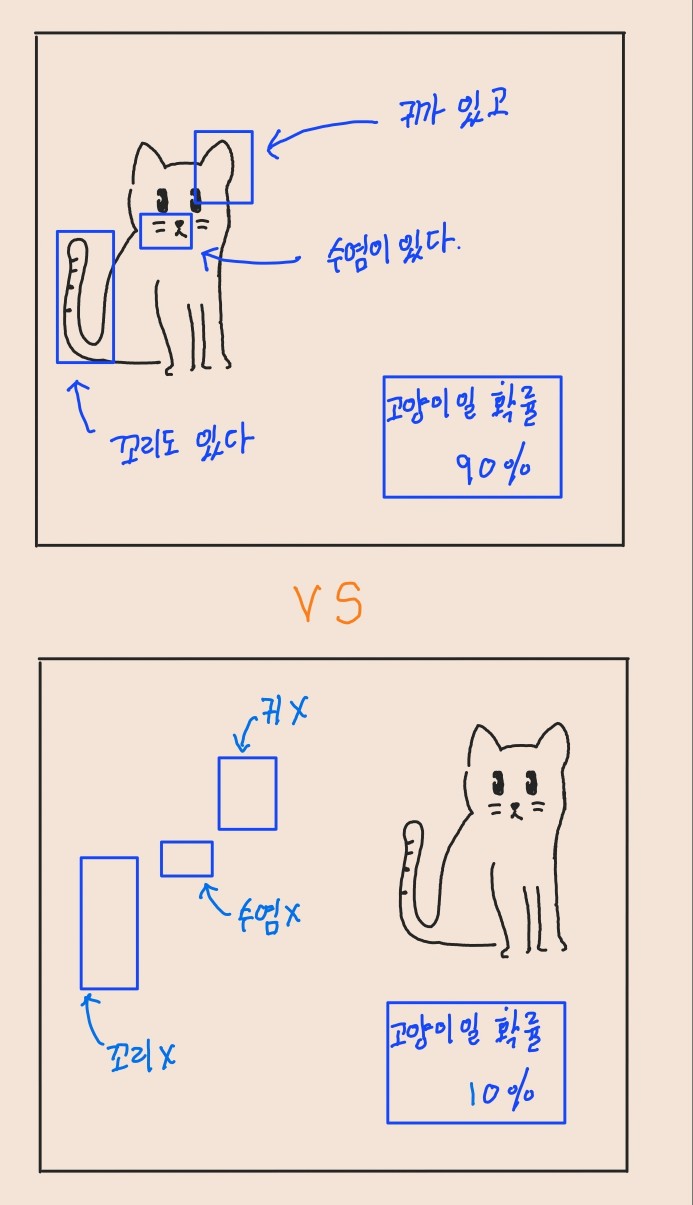 귀가 있고
수염이 있다.
꼬리도 있다
고양이일 확률
90%
VS
귀X
수염X
꼬리X
고양이일 확률
10%